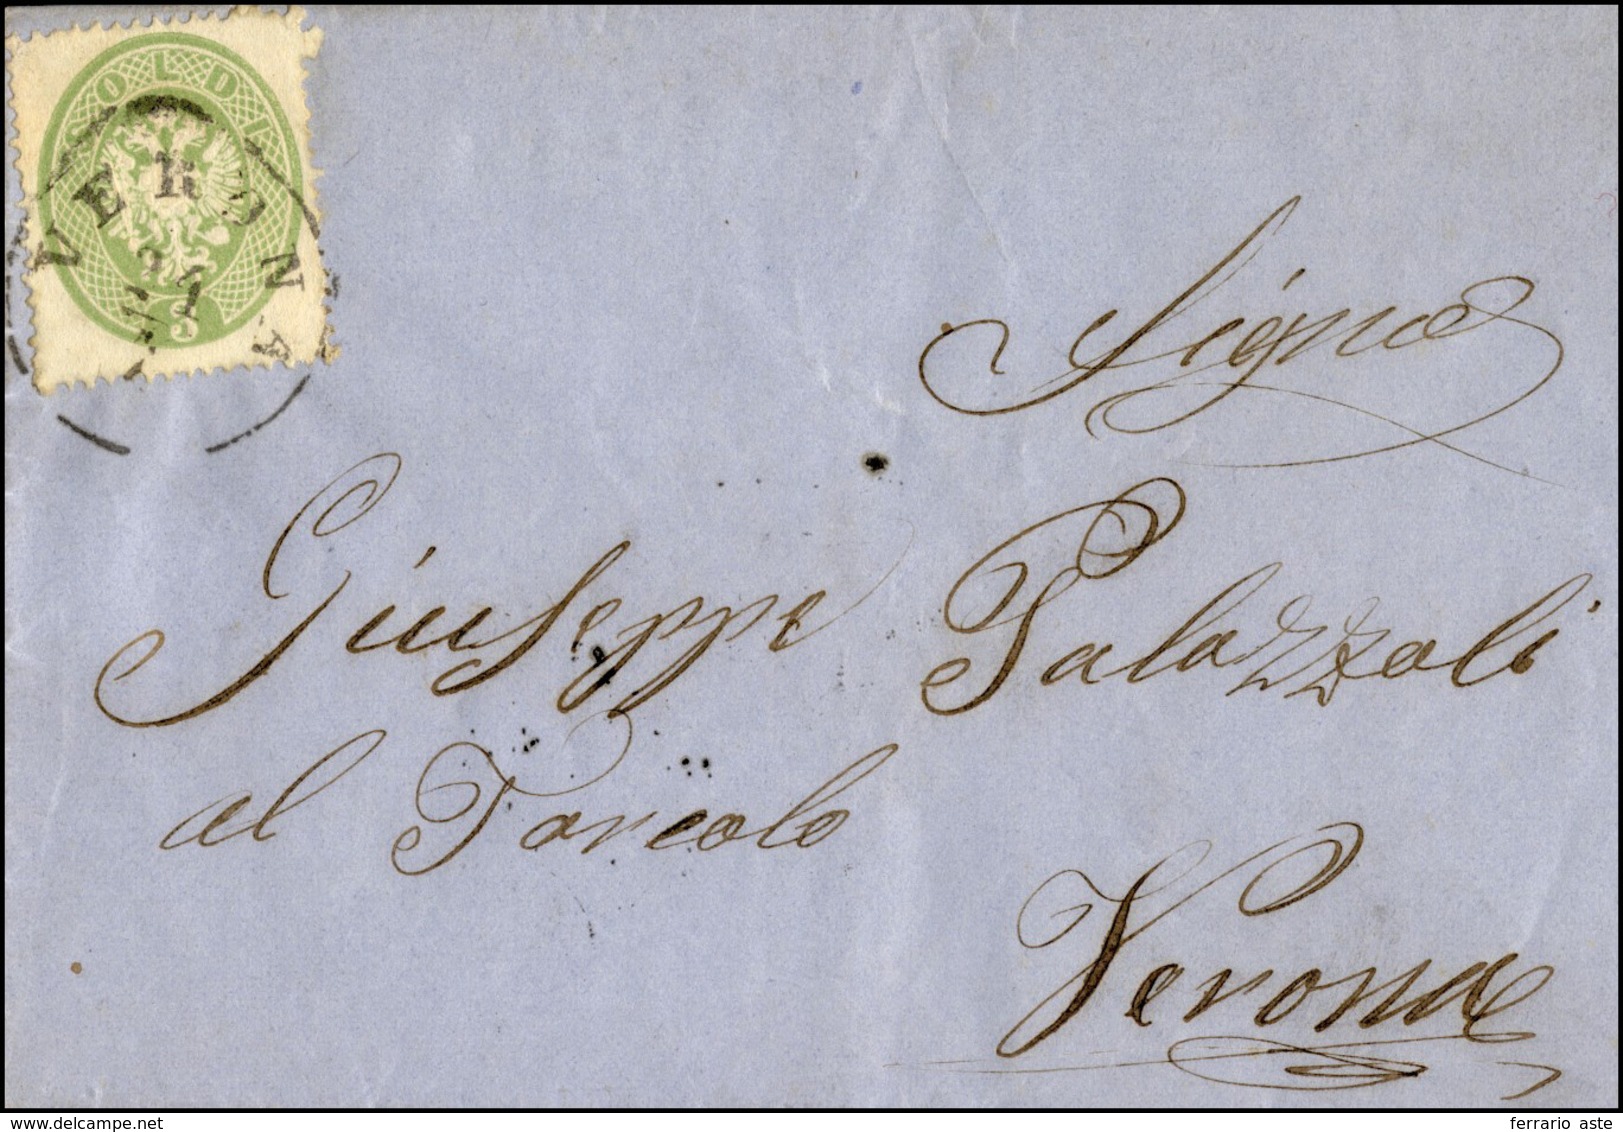 SOLDI
3
VERONA
Signor
Giuseppe Palazzoli
al Torcolo
Verona
ferrario aste